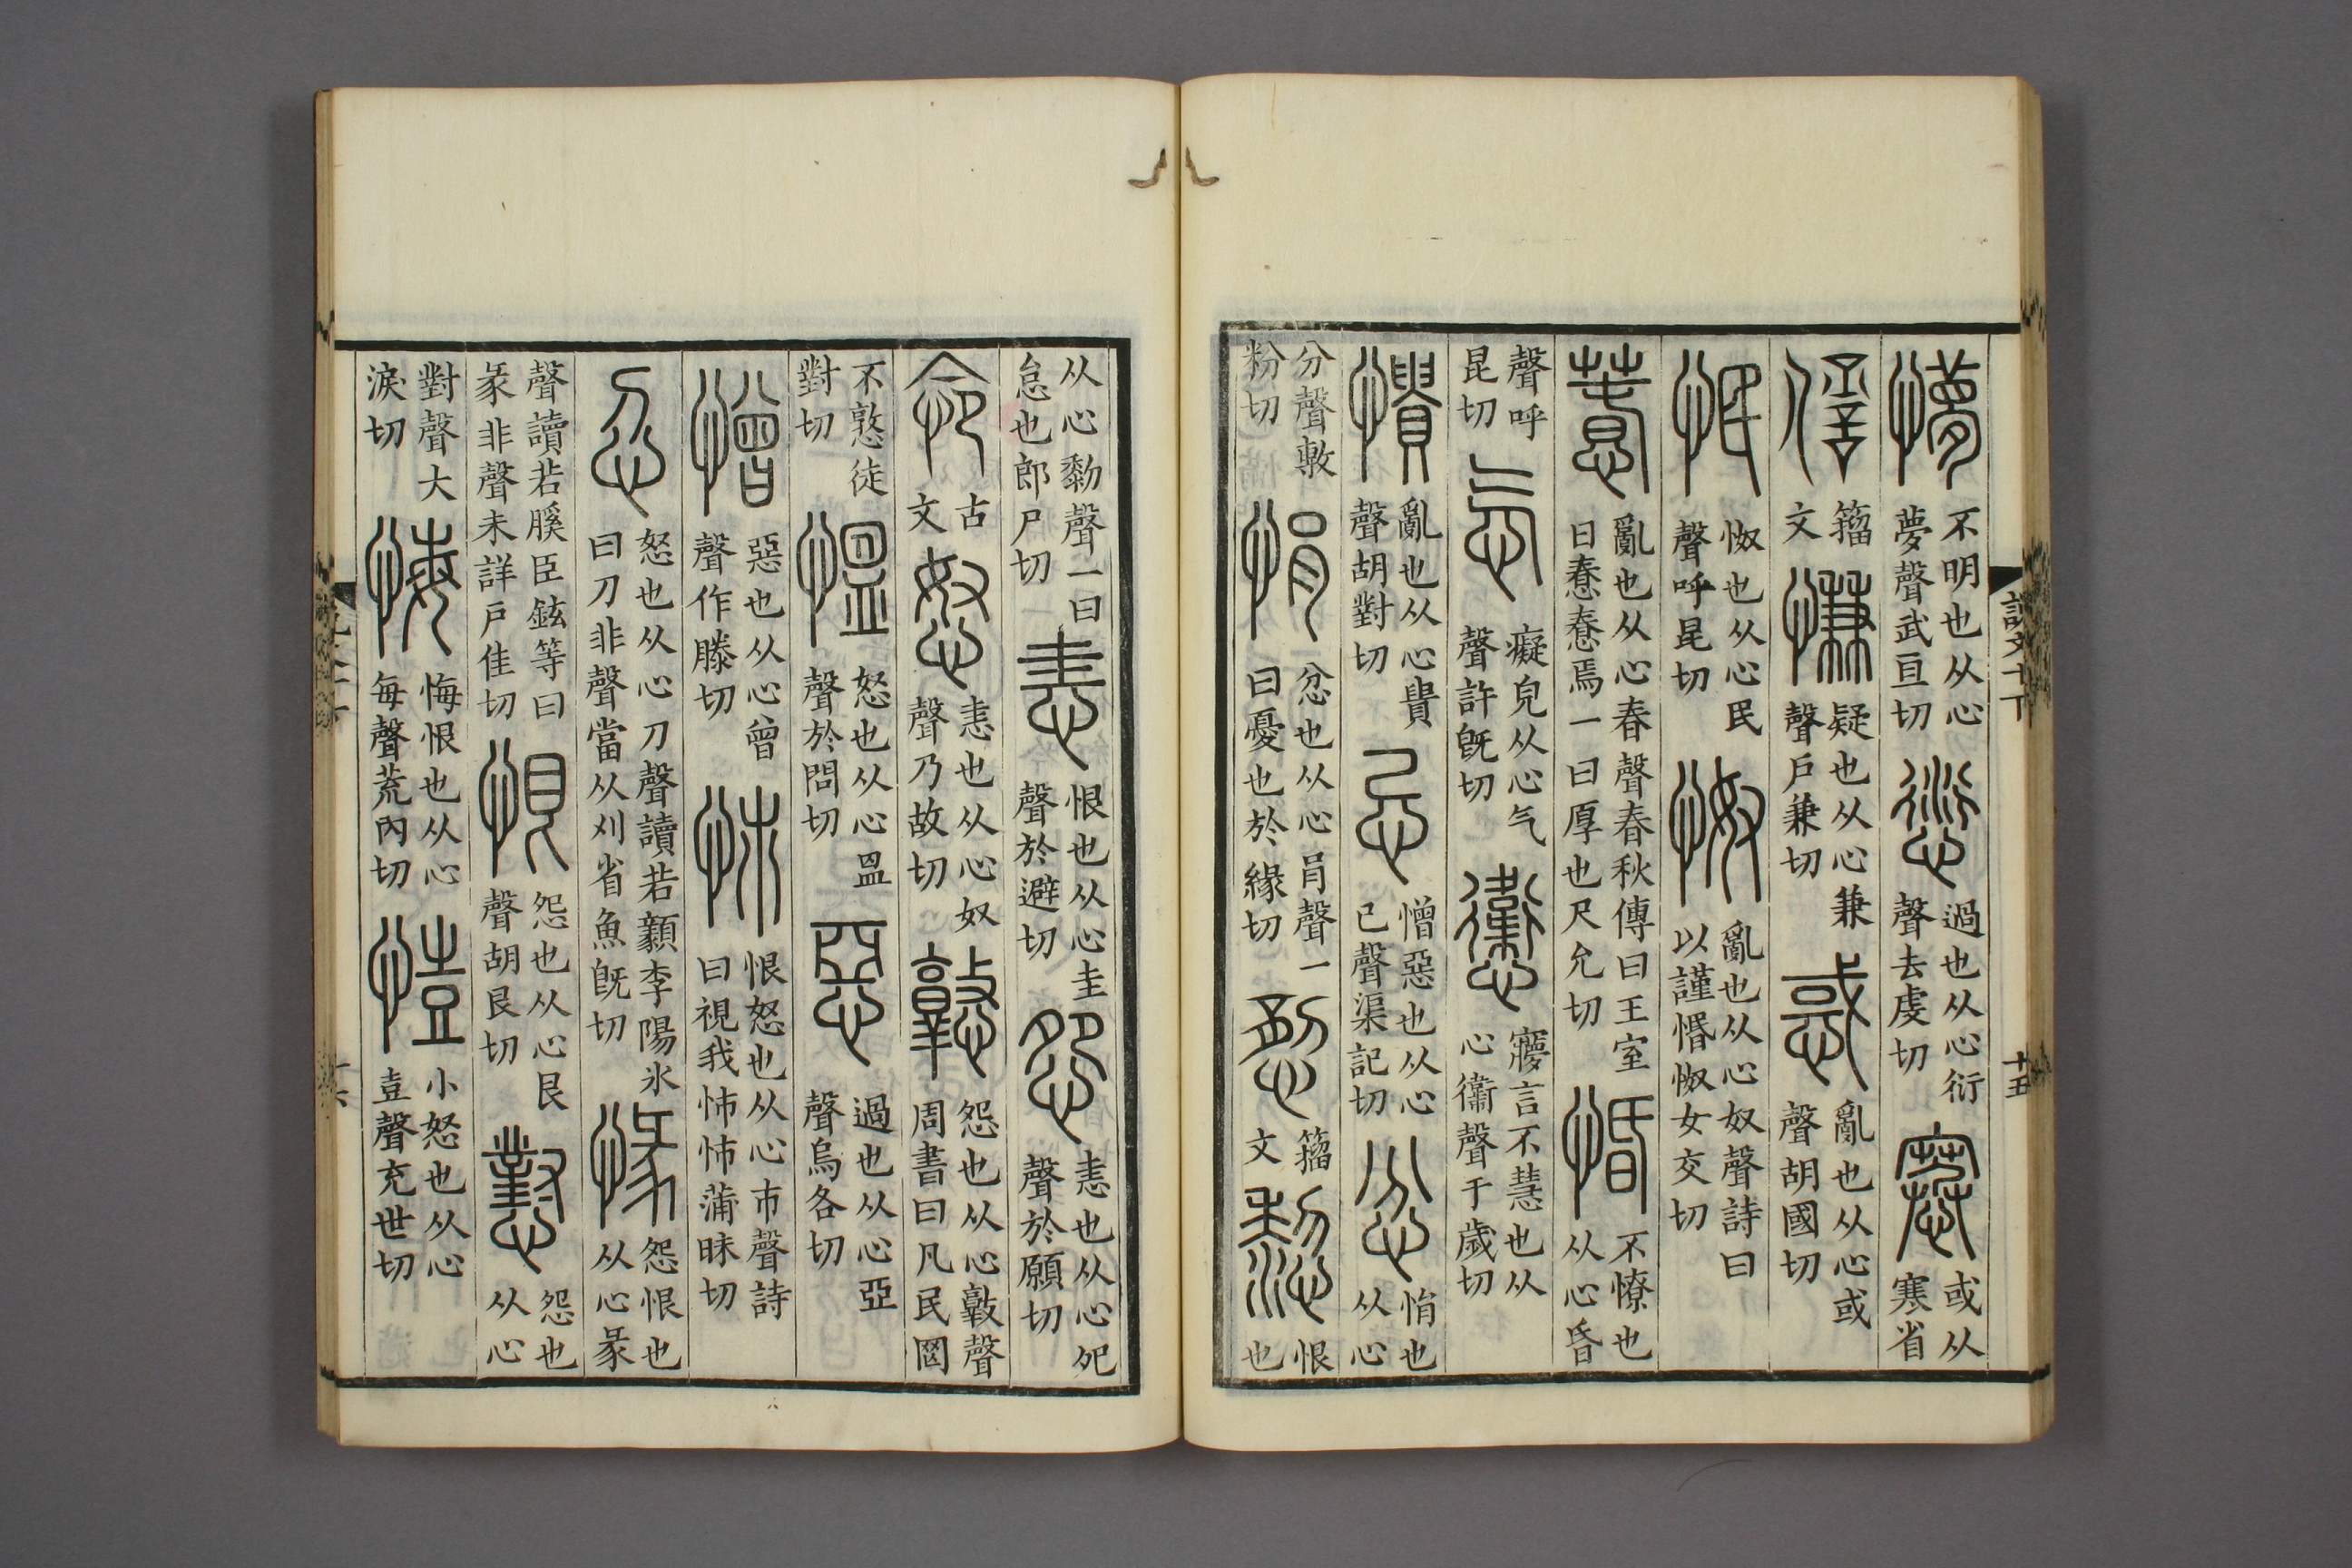 說文十下 十五
懜 不明也从心夢聲武亘切 愆 過也从心衍聲去虔切 𡫸 或从寒省
𠎝 籒文 慊 疑也从心兼聲戶兼切 惑 亂也从心或聲胡國切
怋 怓也从心民聲呼昆切 怓 亂也从心奴聲詩曰以謹惽怓女交切
惷 亂也从心春聲春秋傳曰王室日惷惷焉一曰厚也尺允切 惽 不憭也从心昏
聲呼昆切 忥 癡皃从心气聲許旣切 㦣 寱言不慧也从心衞聲于歲切
憒 亂也从心貴聲胡對切 忌 憎惡也从心己聲渠記切 忿 悁也从心
分聲敷粉切 悁 忿也从心肙聲一曰憂也於緣切 籒文 恨也
从心黎聲一曰怠也郎尸切 恚 恨也从心圭聲於避切 怨 恚也从心夗聲於願切
古文 怒 恚也从心奴聲乃故切 憝 怨也从心敦聲周書曰凡民罔
不憝徒對切 慍 怒也从心𥁕聲於問切 惡 過也从心亞聲烏各切
憎 惡也从心曾聲作滕切 㤄 恨怒也从心巿聲詩曰視我㤄㤄蒲昧切
㣻 怒也从心刀聲讀若顡李陽冰曰刀非聲當从刈省魚旣切 怨恨也从心彖
聲讀若膎臣鉉等曰彖非聲未詳戶佳切 恨 怨也从心艮聲胡艮切 懟 怨也从心
對聲大淚切 悔 悔恨也从心每聲荒內切 小怒也从心壴聲充世切